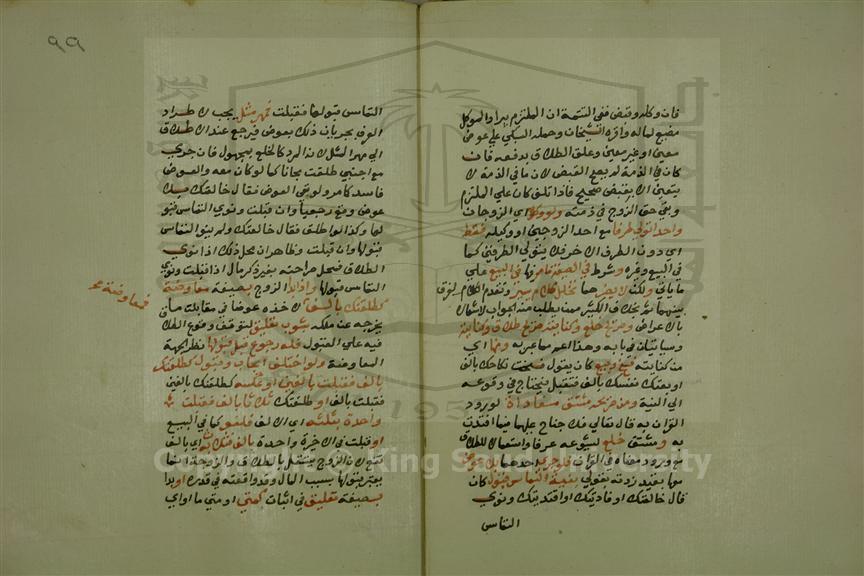 فان وكله وقبض ففي التتمة ان الملتزم يبرا والموكل
مضيع لماله واقره الشيخان وحمله السبكي علي عوض
معين او غير معين وعلق الطلاق بدفعه فان
كان في الذمة لم يصح القبض لان ما في الذمة لا
يتعين الا بقبض صحيح فاذا تلف كان علي الملتزم
وبقي حق الزوج في ذمته ولو وكلا اي الزوجان
واحدا تولي طرفا مع احد الزوجين او وكيله فقط
اي دون الطرف الاخر فلا يتولي الطرفين كما
في البيع وغيره وشرط في الصيغة ما مر فيها في البيع علي
ما ياتي ولكن لا يضر هنا تخلل كلام يسير وتقدم الفرق
بينهما ثم بخلاف الكثير ممن يطلب منه الجواب لاشعاره
بالاعراض وصريح خلع وكنايته صريح طلاق وكنايته
وسياتيان في بابه وهذا اعم مما عبر به ومنها اي
من كنايته فسخ وبيع كان يقول فسخت نكاحك بالف
او بعتك نفسك بالف فتقبل فيحتاج في وقوعه
الي النية ومن صريحه مشتق مفاداة لورود
القران به قال تعالي فلا جناح عليهما فيما افتدت
به ومشتق خلع لشيوعه عرفا واستعمالا للطلاق
مع ورود معناه في القران فلو جري احدهما بلا عوض
معها بقيد زدته بقولي بنية التماس قبول كان
قال خالعتك او فاديتك او افتديتك ونوي
التماس
٩٩
التماس قبولها فقبلت فمهر مثل يجب لاطراد
العرف بجريان ذلك بعوض فيرجع عند الاطلاق
الي مهر المثل لانه المرد كالخلع بمجهول فان جري
مع اجنبي طلقت مجانا كما لو كان معه والعوض
فاسد كما مر ولو نفي العوض فقال خالعتك بلا
عوض وقع رجعيا وان قبلت ونوي التماس قبو
لها وكذا لو اطلق فقال خالعتك ولم ينو التماس
قبولها وان قبلت وظاهر ان محل ذلك اذا نوي
الطلاق فمحل صراحته بغير ذكر مال اذا قبلت ونوي
التماس قبولها واذا بدا الزوج بصيغة معاوضة
كطلقتك بالف فمعاوضة لاخذه عوضا في مقابلة ما
يخرجه عن ملكه بشوب تعليق لتوقف وقوع الطلاق
فيه علي القبول فله رجوع قبل قبولها نظرا لجهة
المعاوضة ولو اختلف ايجاب وقبول كطلقتك
بالف فقبلت بالفين او عكسه كطلقتك بالفين
فقبلت بالف او طلقتك ثلاثا بالف فقبلت
واحدة بثلثه اي الالف فلغو كما في البيع
او قبلت في الاخيرة واحدة بالف فثلاث به اي بالف
تقع لان الزوج يستقل بالطلاق والزوجة انما
يعتبر قبولها بسبب المال وقد وافقته في قدره او بدا
بصيغة تعليق في اثبات كمتي او متي ما او اي